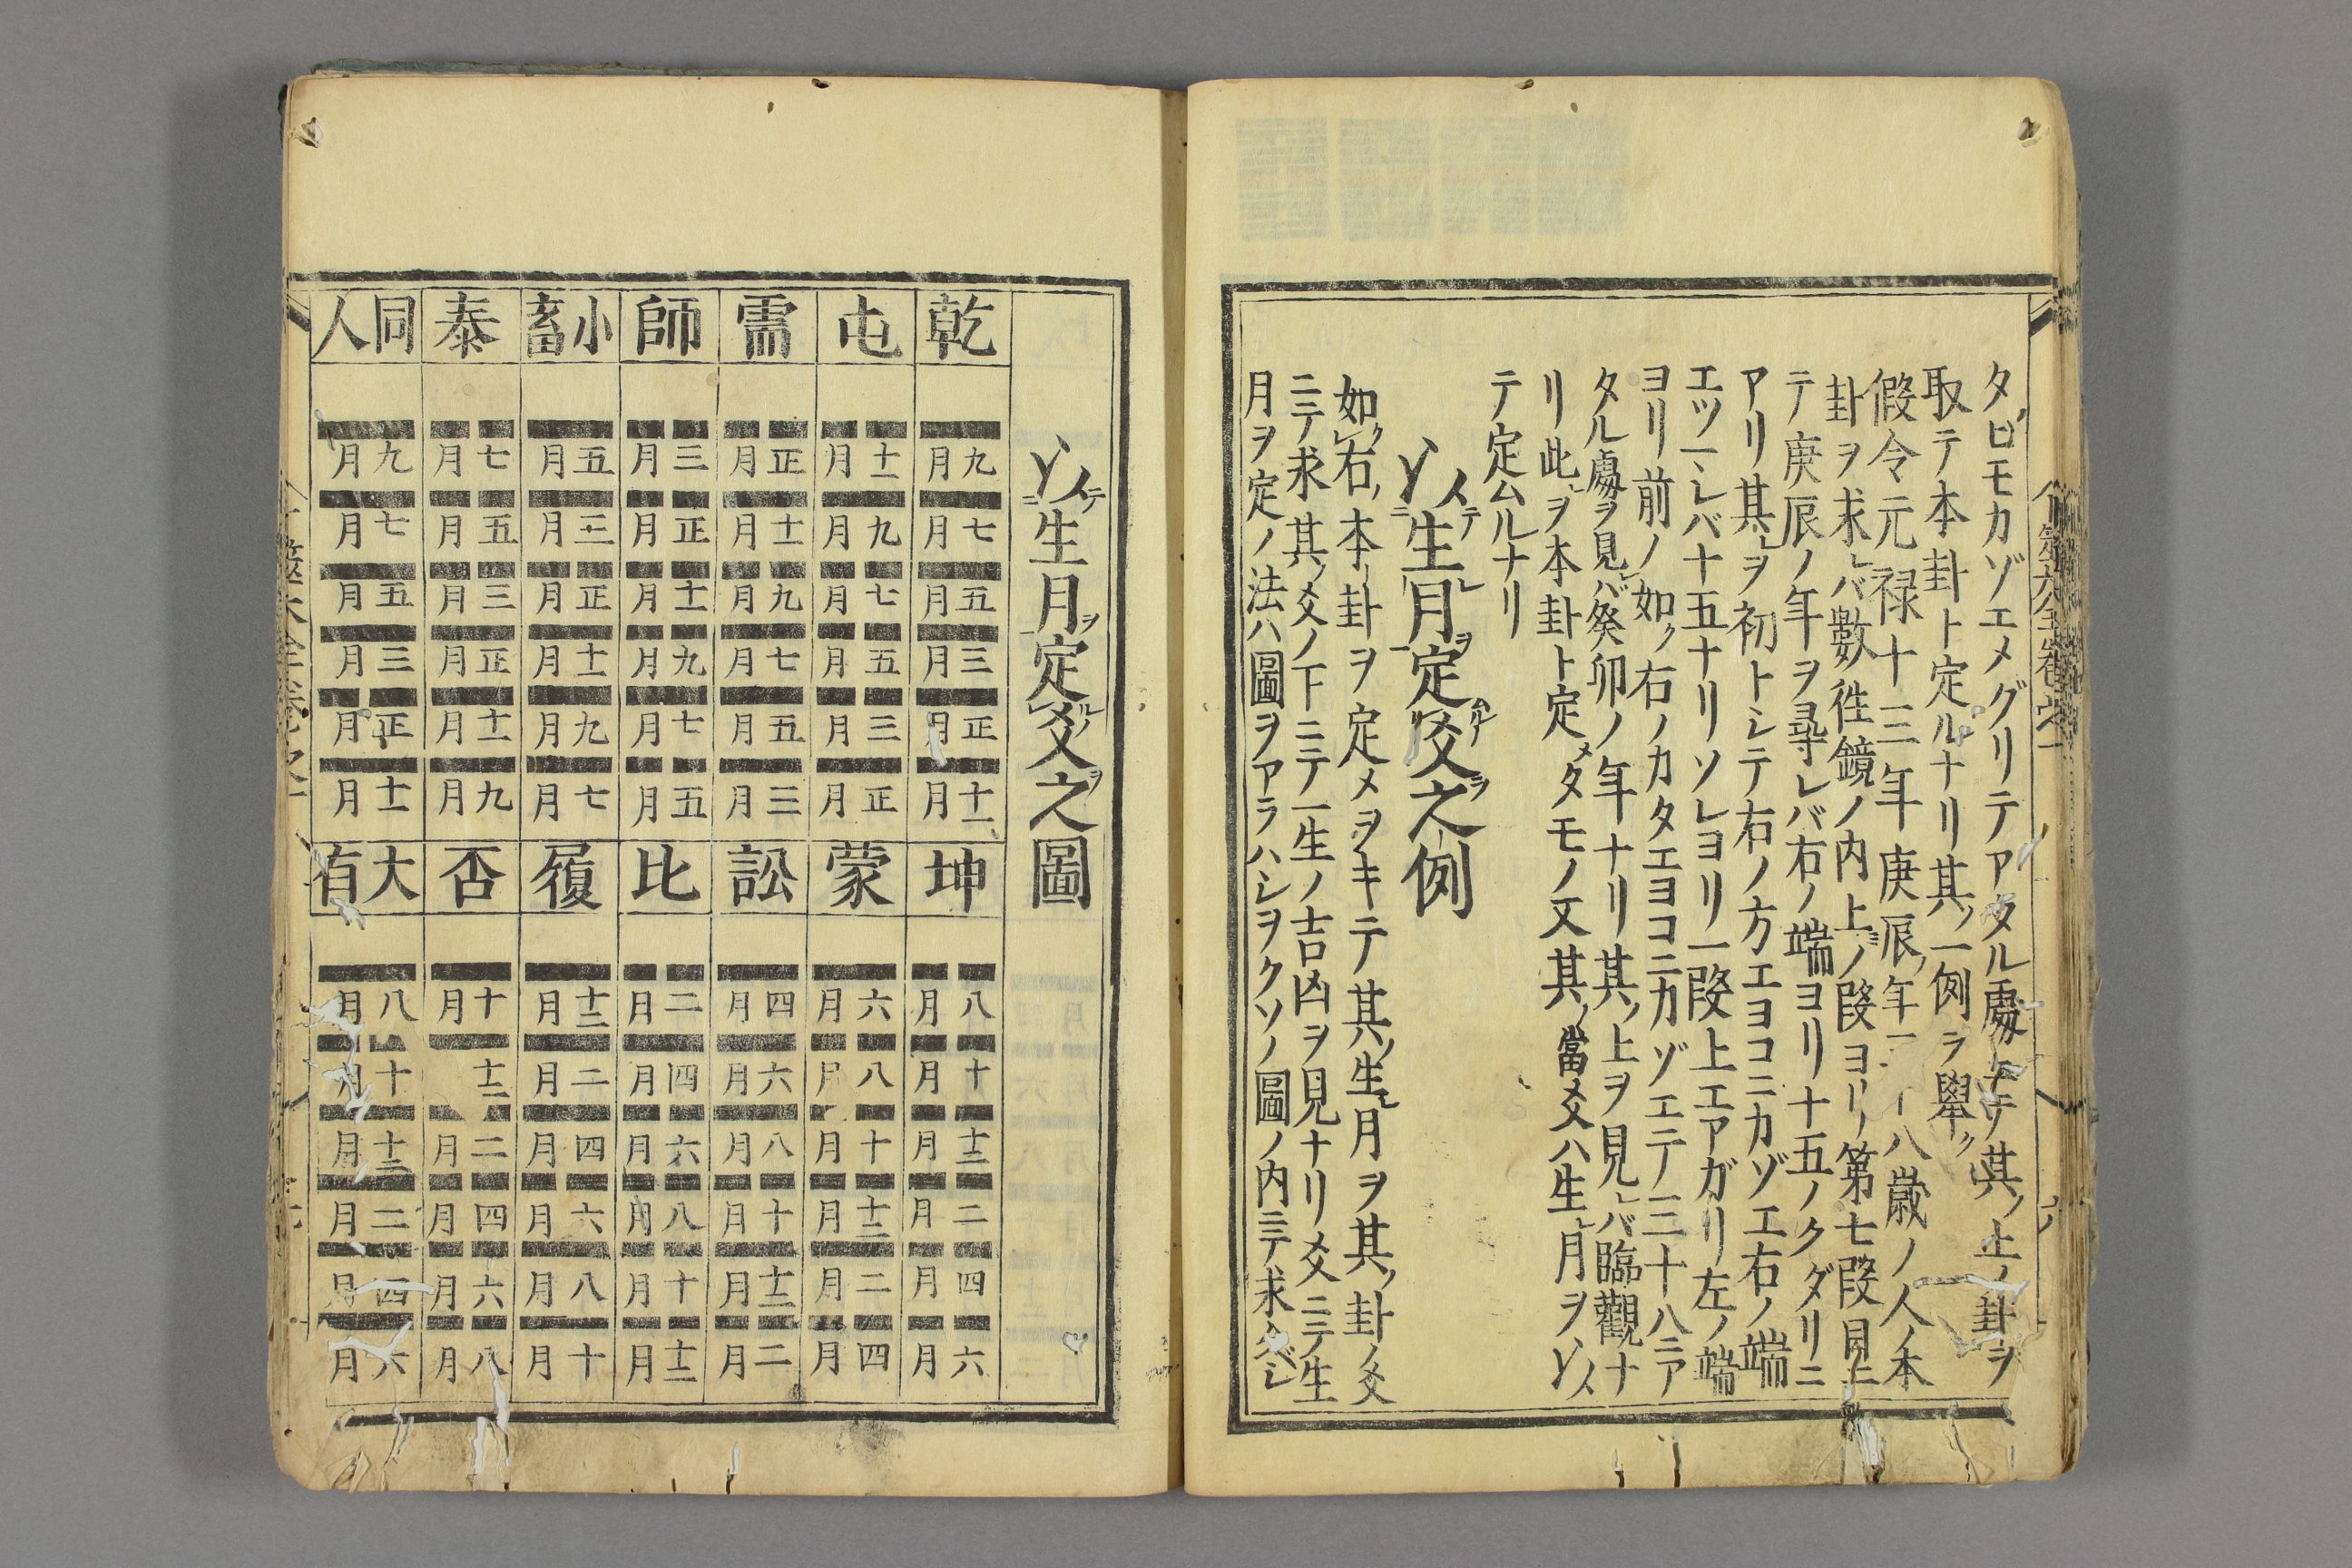 タビモカゾエメグリテアタル處ニテ其ノ上ノ卦ヲ
取テ本卦ト定ルナリ其ノ一例ラ舉ク
假令元禄十三年庚辰ノ年 八歳ノ人ノ本
卦ヲ求レバ數徃鏡ノ内上ノ段ヨリ第七段目
テ庚辰ノ年ヲ尋レバ右ノ端ヨリ十五ノクダリニ
アリ其ヲ初トシテ右ノ方エヨコニカゾエ右ノ端
エツーレバ十五ナリソレヨリ一段上エアガリ左ノ端
ヨリ前ノ如ク右ノカタエヨコニカゾエテ三十八ニア
タル處ヲ見レバ癸卯ノ年ナリ其ノ上ヲ見レバ臨觀ナ
リ此ヲ本卦ト定メタモノ又其ノ當爻ハ生レ月ヲ以
テ定ムルナリ
以テ生レ月ヲ定ムル爻ヲ之例
如ク右ノ本卦ヲ定メヲキテ其ノ生レ月ヲ其ノ卦ノ爻
ニテ求其ノ爻ノ下ニテ一生ノ吉凶ヲ見ナリ爻ニテ生
月ヲ定ノ法ハ圖ヲアラハシヲクソノ圖ノ内ニテ求ムベシ
以テ生月ヲ定ルノ爻ヲ之圖
乾 屯 需 師 小畜 泰 同人
九月 十一月 正月 三月 五月 七月 九月
七月 九月 十一月 正月 三月 五月 七月
五月 七月 九月 十一月 正月 三月 五月
三月 五月 七月 九月 十一月 正月 三月
正月 三月 五月 七月 九月 十一月 正月
十一月 正月 三月 五月 七月 九月 十一月
坤 蒙 訟 比 履 否 大有
八月 六月 四月 二月 十二月 十月 八月
十月 八月 六月 四月 二月 十二 十月
十二月 十月 八月 六月 四月 二月 十二月
二月 十二月 十月 八月 六月 四月 二月
四月 二月 十二月 十月 八月 六月 四月
六月 四月 二月 十二月 十月 八月 六月